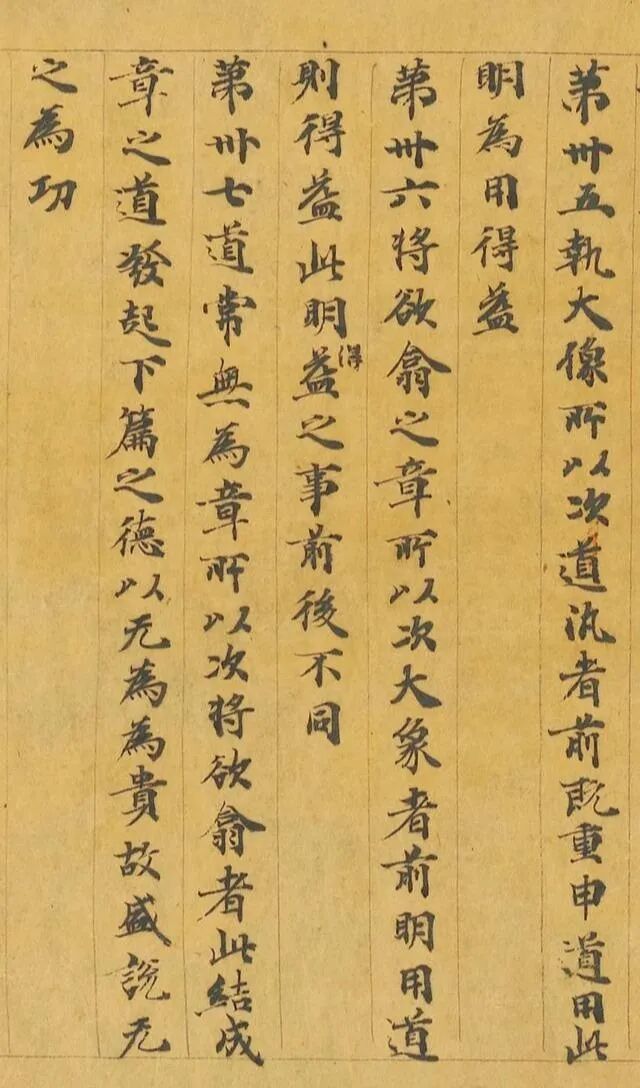 第卅五執大像所以次道汎者前既重申道用此
明為用得益
第卅六將欲翕之章所以次大象者前明用道
則得益此明得益之事前後不同
第卅七道常無為章所以次將欲翕者此結成
章之道發起下篇之德以无為為貴故盛說无
之為功